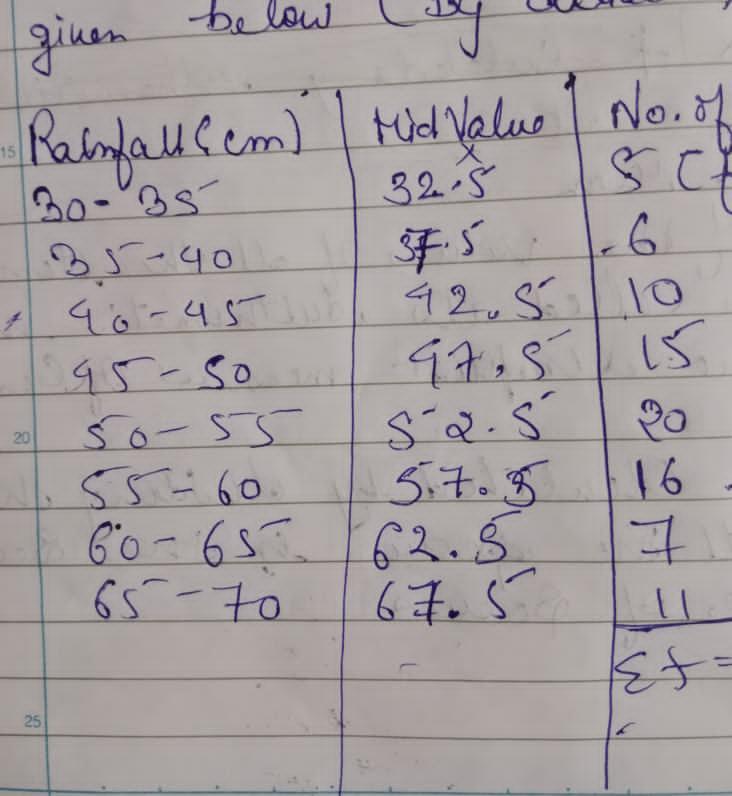 given below (By
Rainfall (cm) Mid Value No. of
x
30-35 32.5 5 (f
35-40 37.5 6
40-45 42.5 10
45-50 47.5 15
50-55 52.5 20
55-60 57.5 16
60-65 62.5 7
65-70 67.5 11
Σf =
15
20
25